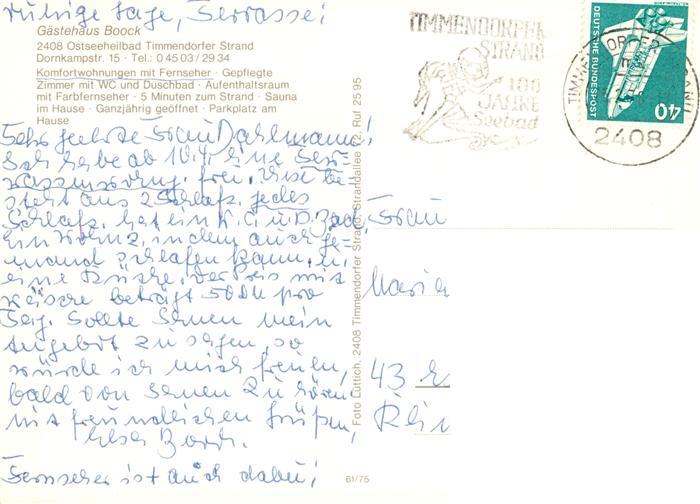 ruhige Lage, Terrasse!
Gästehaus Boock
2408 Ostseeheilbad Timmendorfer Strand
Dornkampstr. 15 · Tel.: 0 45 03 / 29 34
Komfortwohnungen mit Fernseher · Gepflegte
Zimmer mit WC und Duschbad · Aufenthaltsraum
mit Farbfernseher · 5 Minuten zum Strand · Sauna
im Hause · Ganzjährig geöffnet · Parkplatz am
Hause
Sehr geehrte Frau Dahlmann!
Ich habe ab 10.4. eine Ter-
rassenwohng. frei. Diese be-
steht aus 2 Schlafz. jedes
Schlafz. hat ein W.C. u. D. Bad,
ein Wohnz. in dem auch je-
mand schlafen kann, u.
eine Küche. der Preis mit
Wäsche beträgt 50 DM pro
Tag. Sollte Ihnen mein
Angebot zu sagen, so
würde ich mich freuen,
bald von Ihnen zu hören
mit freundlichen Grüßen,
Boock.
Fernseher ist auch dabei!
Foto Lüttich, 2408 Timmendorfer Strand, Strandallee 72, Ruf 25 95
61/75
TIMMENDORFER
STRAND
100
JAHRE
Seebad
DEUTSCHE BUNDESPOST
40
2408
Frau
Maria
43 E